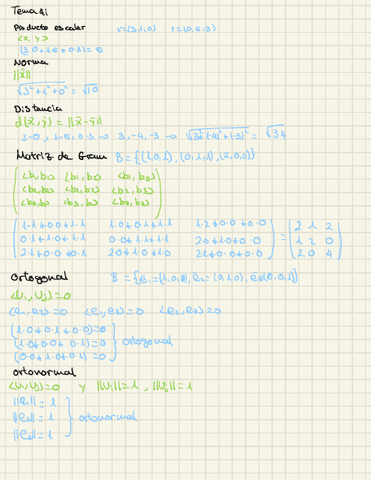 Tema 4:
Producto escalar v=(3,1,0) r=(0,5,3)
<x, y>
(3·0+1·5+0·3)=5
Norma
||x̄||
√3²+1²+0² = √10
Distancia
d(x̄,ȳ) = ||x̄-ȳ||
3-0, 1-5, 0-3 → 3,-4,-3 → √3²(-4)²+(-3)² = √34
Matriz de Gram B={(1,0,1),(0,1,1),(2,0,0)}
<b₁,b₁> <b₁,b₂> <b₁,b₃>
<b₂,b₁> <b₂,b₂> <b₂,b₃>
<b₃,b₁> <b₃,b₂> <b₃,b₃>
1·1+0·0+1·1 1·0+0·1+1·1 1·2+0·0+0·0 = 2 1 2
0·1+1·0+1·1 0·0+1·1+1·1 2·0+1·0+0·0 1 2 0
2·1+0·0+0·1 2·0+1·0+1·0 2·2+0·0+0·0 2 0 4
Ortogonal B={e₁=(1,0,0), e₂=(0,1,0), e₃(0,0,1)}
=0
<e₁,e₂>=0 <e₁,e₃>=0 <e₂,e₃>=0
(1·0+0·1+0·0)=0
(1·0+0·0+0·1)=0 ortogonal
(0·0+1·0+0·1)=0
ortonormal
=0 y =1, =1
||e₁||=1
||e₂||=1 ortonormal
||e₃||=1